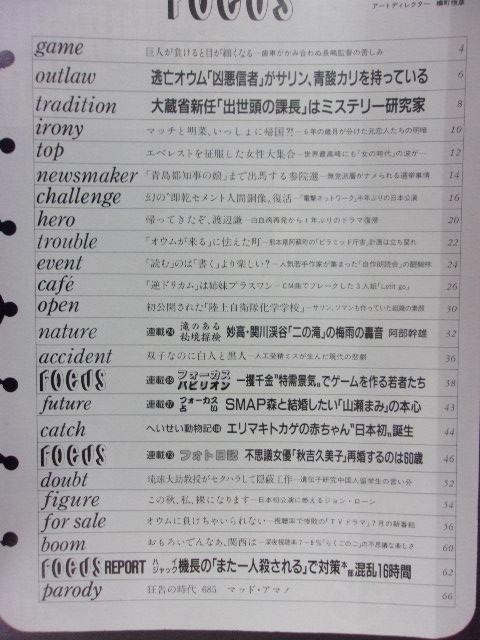 FOCUS
アートディレクター 横町恒彦
game 巨人が負けると目が細くなる—歯車がかみ合わぬ長嶋監督の苦しみ 4
outlaw 逃亡オウム「凶悪信者」がサリン、青酸カリを持っている 6
tradition 大蔵省新任「出世頭の課長」はミステリー研究家 8
irony マッチと明菜、いっしょに帰国?!—6年の歳月が分けた元恋人たちの明暗 10
top エベレストを征服した女性大集合—世界最高峰にも「女の時代」の波が… 12
newsmaker 「青島都知事の娘」まで出馬する参院選—無党派層がナメられる選挙事情 14
challenge 幻の“即乾セメント人間銅像、復活—「電撃ネットワーク」半年ぶりの日本公演 16
hero 帰ってきたぞ、渡辺謙—白血病再発から1年ぶりのドラマ復帰 20
trouble 「オウムが来る」に怯えた町—熊本県阿蘇町の「ピラミッド庁舎」計画は立ち腐れ 22
event 「読む」のは「書く」より楽しい?—人気若手作家が集まった「自作朗読会」の醍醐味 24
café 「逆ドリカム」は姉妹プラスワン—CM曲でブレークした3人組「Le Petit go」 26
open 初公開された「陸上自衛隊化学学校」—サリン、ソマンも作っていた組織の素顔 30
nature 連載㉔ 滝のある秘境探検 妙高・関川渓谷「二の滝」の梅雨の轟音 阿部幹雄 32
accident 双子なのに白人と黒人—人工受精ミスが生んだ現代の悲劇 36
FOCUS 連載 フォーカスパビリオン 一攫千金“特需景気”でゲームを作る若者たち 38
future 連載 フォーカスうらない SMAP森と結婚したい「山瀬まみ」の本心 43
catch へいせい動物記 エリマキトカゲの赤ちゃん“日本初”誕生 44
FOCUS 連載 フォト日記 不思議女優「秋吉久美子」再婚するのは60歳 46
doubt 琉球大助教授がセクハラして隠蔽工作—遺伝子研究中国人留学生の言い分 52
figure この秋、私、裸になります—日本初公演に燃えるジョン・ローン 54
for sale オウムに負けちゃいられない—視聴率で惨敗の「TVドラマ」7月の新番組 56
boom おもろいてんなあ、関西は—深夜視聴率7〜8%「らくごのご」の不思議な楽しさ 60
FOCUS REPORT ハイジャック 機長の「また一人殺される」で対策本部混乱16時間 62
parody 狂告の時代 685 マッド・アマノ 66